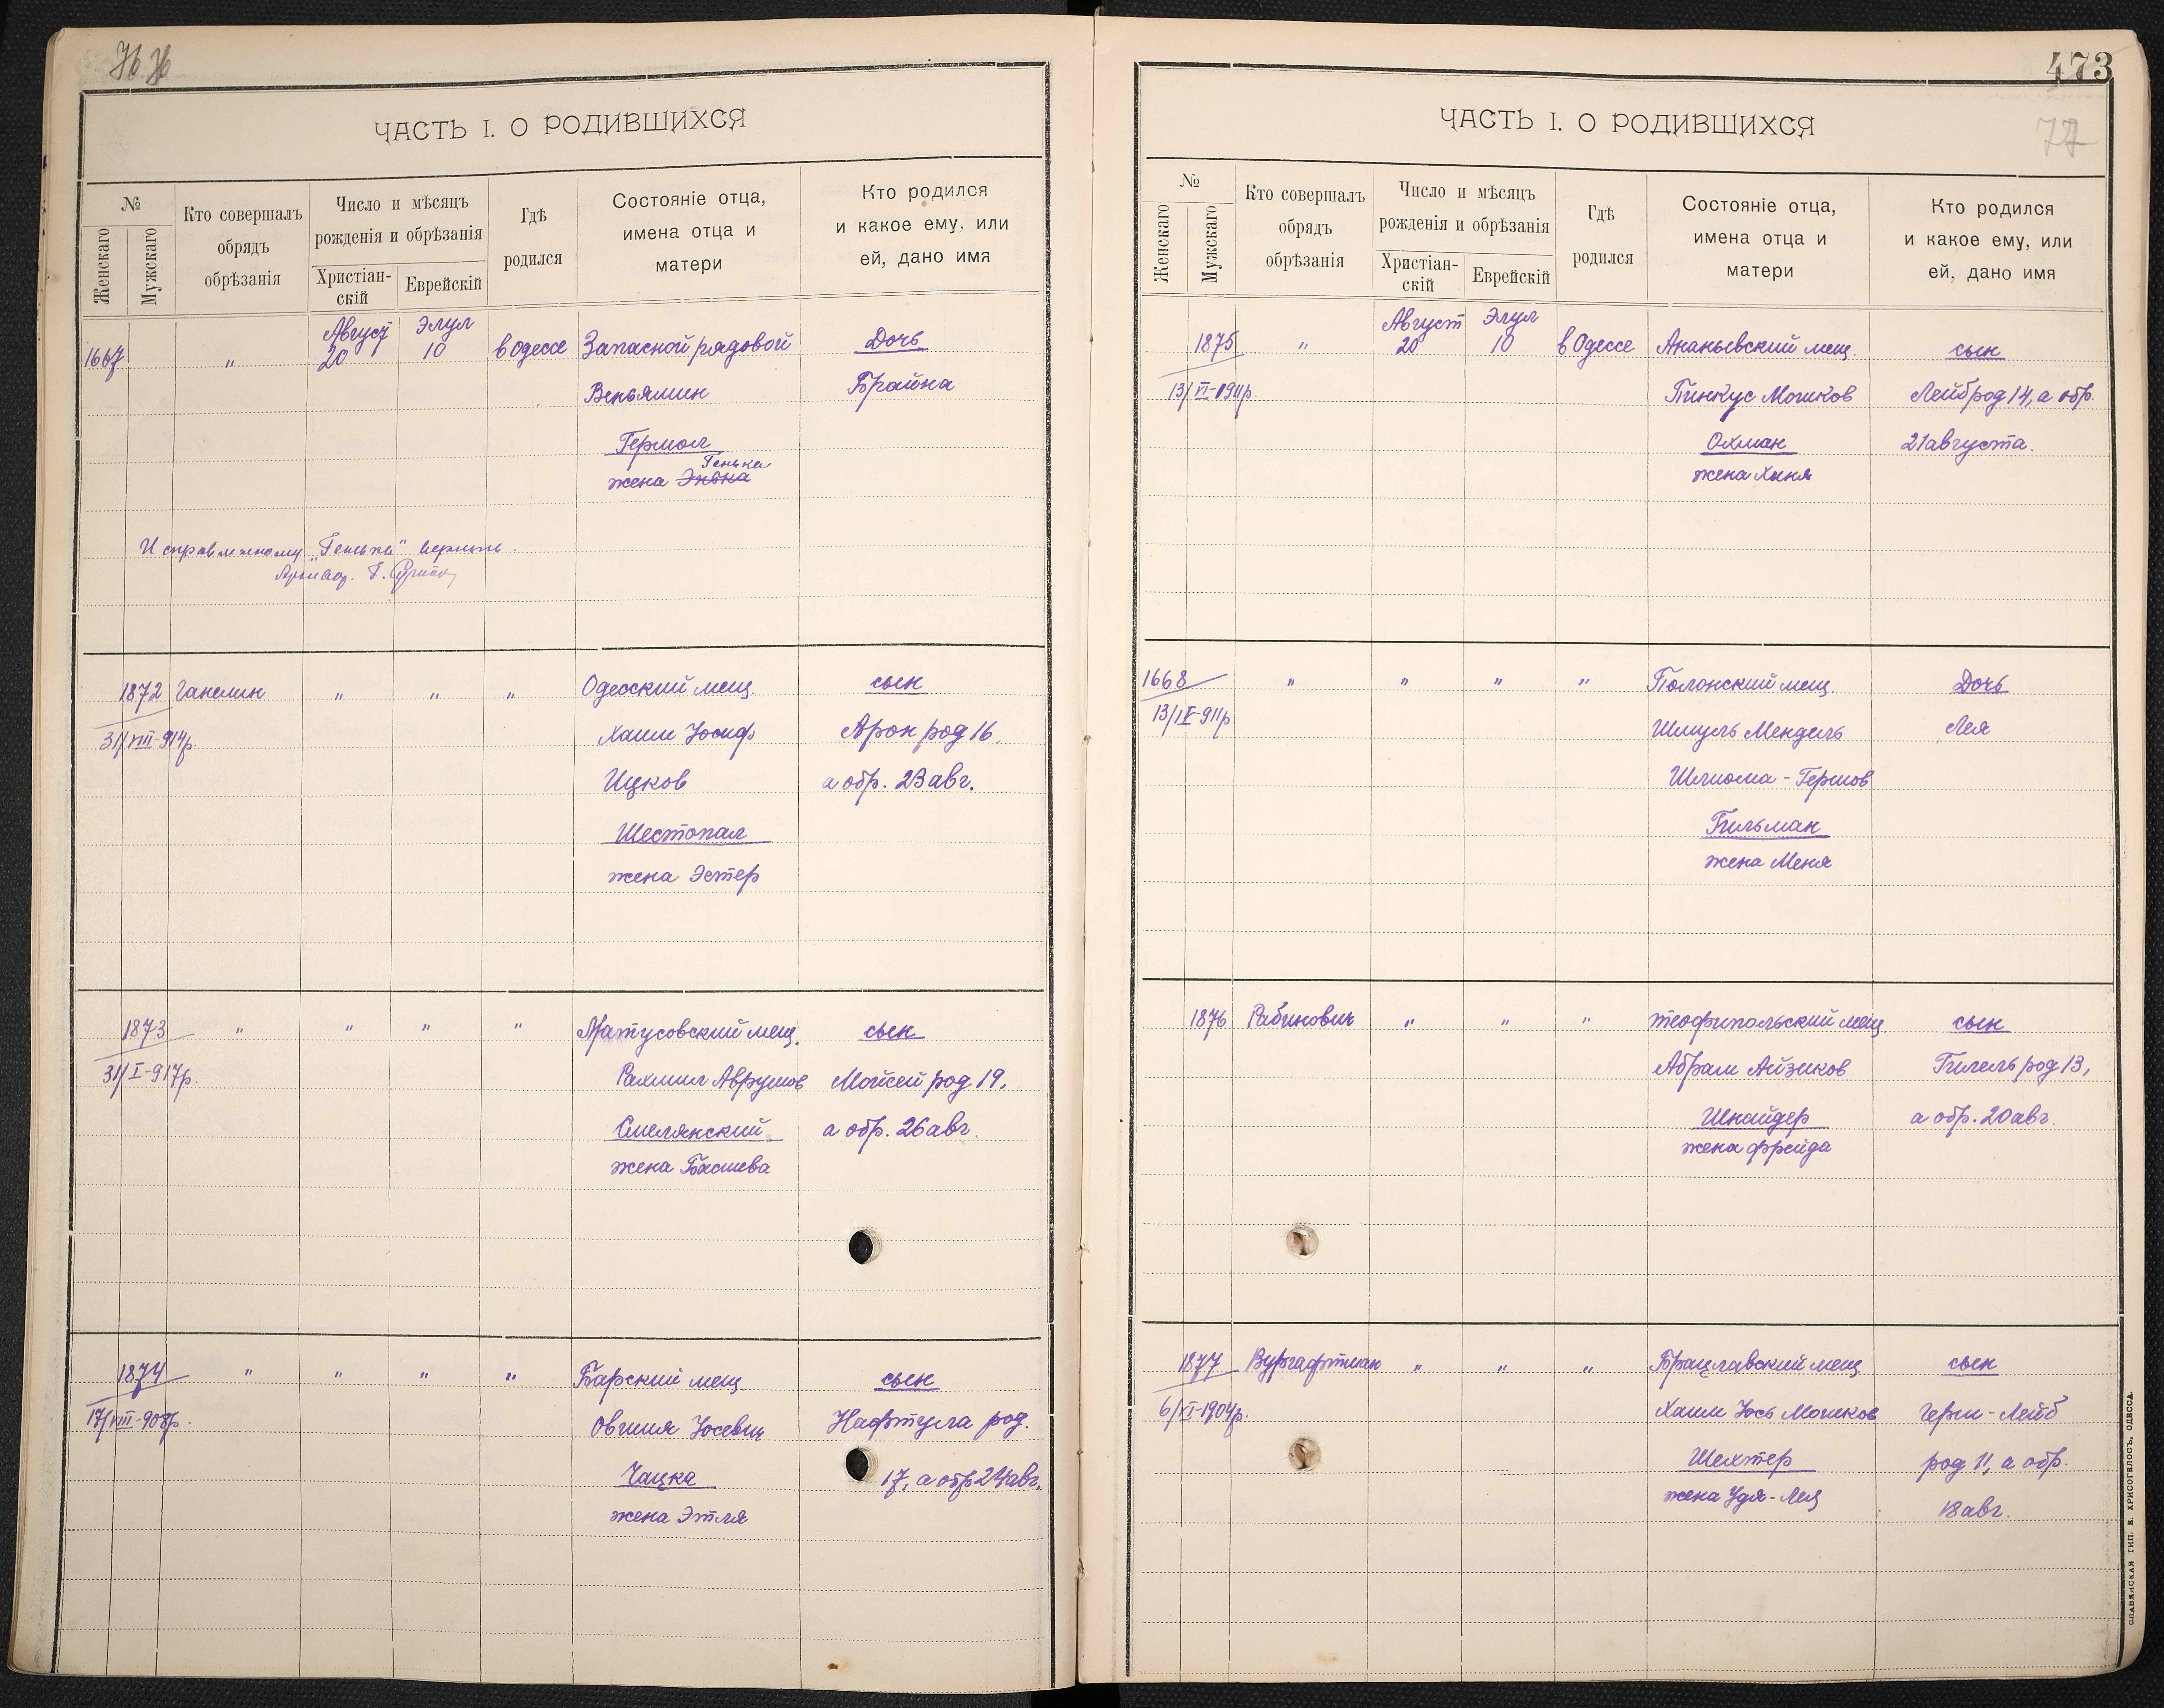 473
77
ЧАСТЬ I. О РОДИВШИХСЯ
№
Женскаго
Мужскаго
Кто совершалъ
обрядъ
обрѣзанія
Число и мѣсяцъ
рожденія и обрѣзанія
Христіан-
скій
Еврейскій
Гдѣ
родился
Состояніе отца,
имена отца и
матери
Кто родился
и какое ему, или
ей, дано имя
Август Элул
1667 " 20 10 в Одессе Запасной рядовой Дочь
Веньямин Брайна
Гершол
Генька
жена Энька
Исправленному „Генька" верить.
1872 Ганелин " " " Одесский мещ. сын
31/VIII-914р. Хаим Иосиф Арон род 16
Ицков а обр. 23 авг.
Шестопал
жена Эстер
1873 " " " " Мратусовский мещ. сын
31/I-917р. Рахмил Аврумов Мойсей род 19,
Смелянский а обр. 26 авг.
жена Басшева
1874 " " " " Барский мещ. сын
17/VIII-908р. Овшия Иосевич Нафтула род.
Чацка 17, а обр 24 авг.
жена Этля
ЧАСТЬ I. О РОДИВШИХСЯ
№
Женскаго
Мужскаго
Кто совершалъ
обрядъ
обрѣзанія
Число и мѣсяцъ
рожденія и обрѣзанія
Христіан-
скій
Еврейскій
Гдѣ
родился
Состояніе отца,
имена отца и
матери
Кто родился
и какое ему, или
ей, дано имя
Август Элул
1875 " 20 10 в Одессе Ананьевский мещ. сын
Пинкус Мошков Лейб род 14, а обр.
Охман 21 августа.
жена Хиня
1668 " " " " Полонский мещ. Дочь
13/IX-911р Шмуль Мендель Лея
Шлиома-Гершов
Гильман
жена Меня
1876 Рабинович " " " теофипольский мещ сын
Абрам Айзиков Гилель род 13,
Шнайдер а обр. 20 авг.
жена Фрейда
1877 Вургафтман " " " Брацлавский мещ сын
6/XI-1904р. Хаим Иось Мошков Герш-Лейб
Шехтер род 11, а обр.
жена Удя-Лея 18 авг.
СЛАВЯНСКАЯ ТИП. Н. ХРИСОГЕЛОСЪ, ОДЕССА